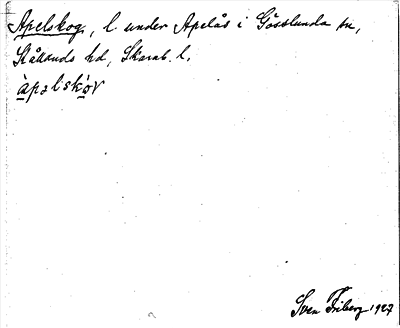 Apelskog, l. under Apelås i Gösslunda sn,
Kållands hd, Skarab. l.
àpəlskòv
Sven Friberg 1927